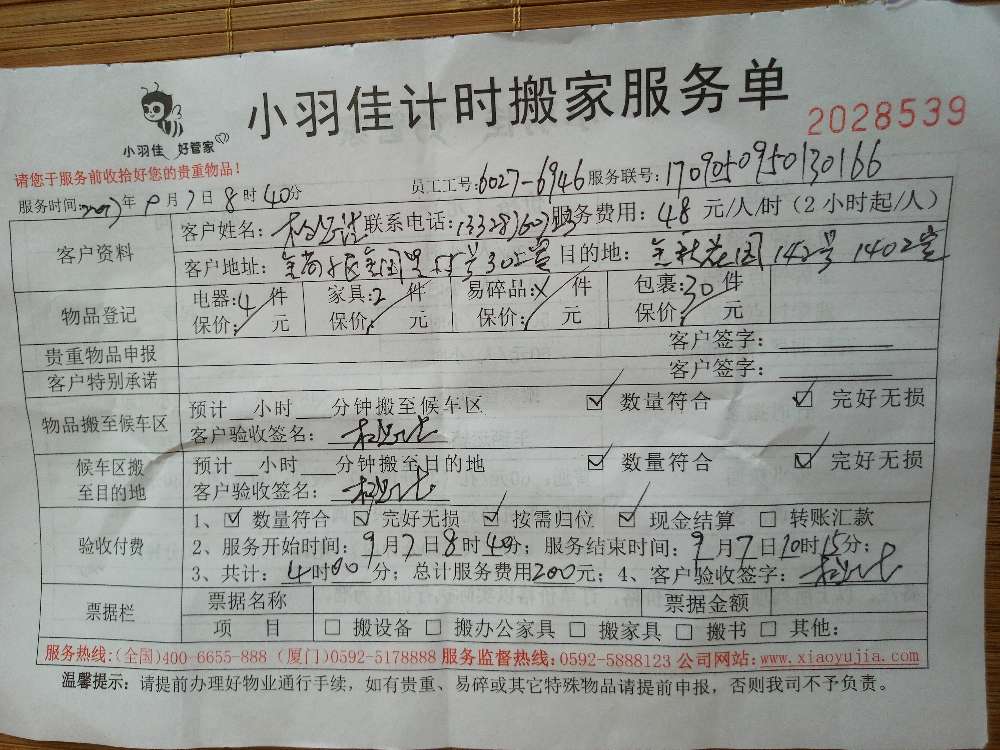 小羽佳计时搬家服务单
小羽佳 好管家
2028539
请您于服务前收拾好您的贵重物品!
员工工号:6027-6946 服务联号:1709050950130166
服务时间:2017年9月7日8时40分
客户资料
客户姓名: 联系电话: 服务费用:48元/人/时(2小时起/人)
客户地址: 302室 目的地:金秋花园142号1402室
物品登记
电器:4件 家具:2件 易碎品:X件 包裹:30件
保价: 元 保价: 元 保价: 元 保价: 元
贵重物品申报 客户签字:
客户特别承诺 客户签字:
物品搬至候车区
预计__小时___分钟搬至候车区 ☑ 数量符合 ☑ 完好无损
客户验收签名:
候车区搬至目的地
预计__小时___分钟搬至目的地 ☑ 数量符合 ☑ 完好无损
客户验收签名:
验收付费
1、☑ 数量符合 ☑ 完好无损 ☑ 按需归位 ☑ 现金结算 □ 转账汇款
2、服务开始时间:9月7日8时40分;服务结束时间:9月7日10时15分;
3、共计:4时00分;总计服务费用200元;4、客户验收签字:
票据栏
票据名称 票据金额
项 目 □ 搬设备 □ 搬办公家具 □ 搬家具 □ 搬书 □ 其他:
服务热线:(全国)400-6655-888 (厦门)0592-5178888 服务监督热线:0592-5888123 公司网站:www.xiaoyujia.com
温馨提示:请提前办理好物业通行手续,如有贵重、易碎或其它特殊物品请提前申报,否则我司不予负责。